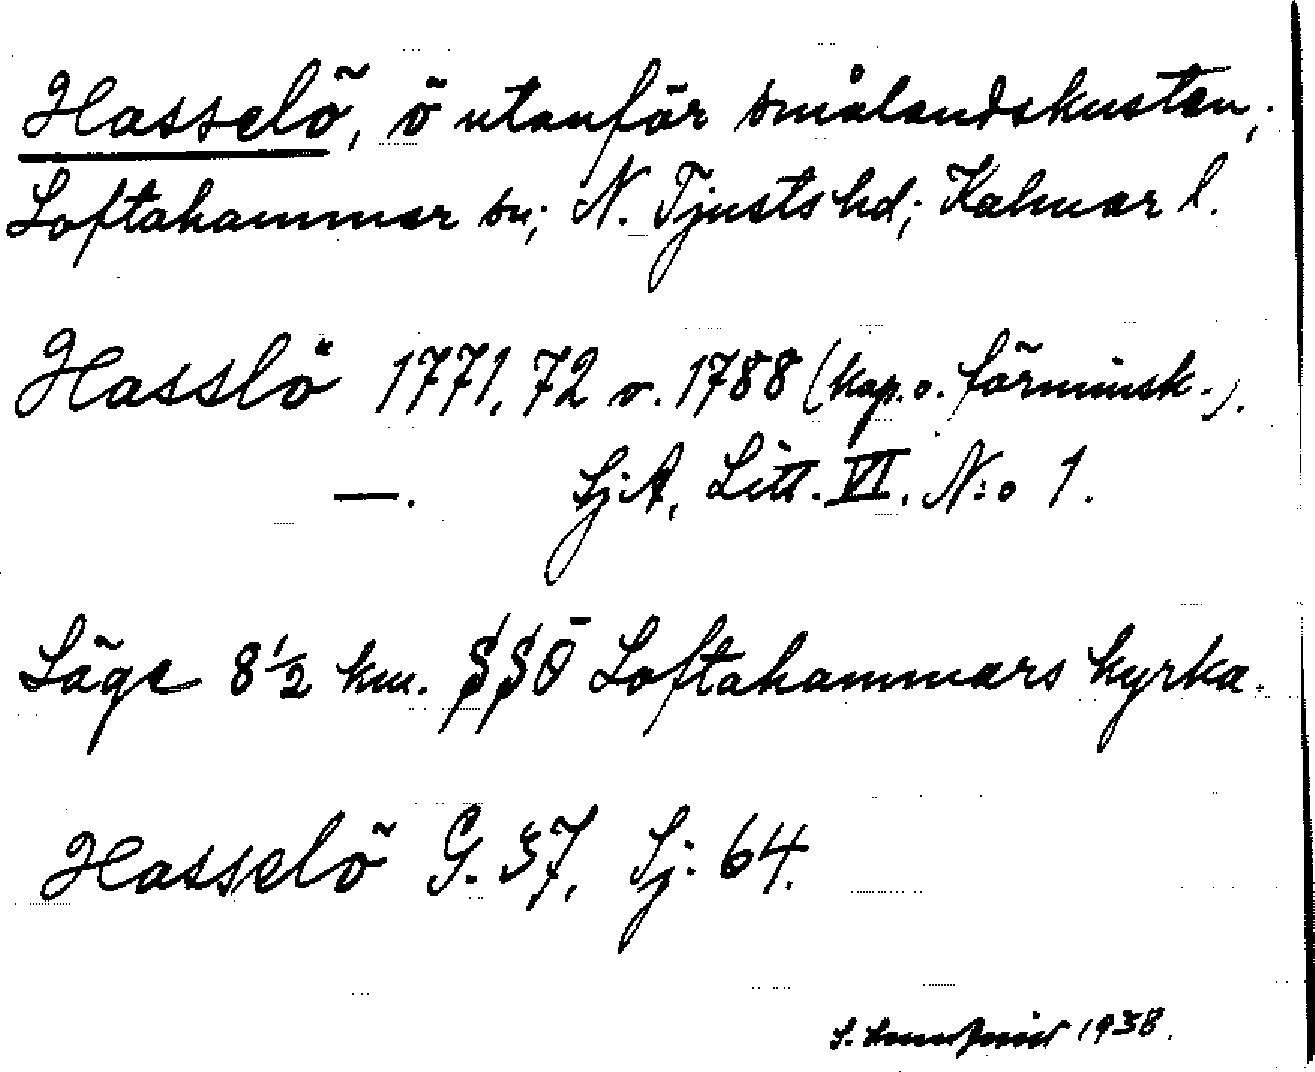 Hasselö, ö utanför smålandskusten,
Loftahammar sn; N. Tjusts hd; Kalmar l.
Hasslö 1771, 72 o. 1788 (kop. o. förminsk.).
—. Sj.A, Litt. VI. N:o 1.
Läge 8½ km. SSÖ Loftahammars kyrka.
Hasselö G. 37, Sj: 64.
S. 1938.